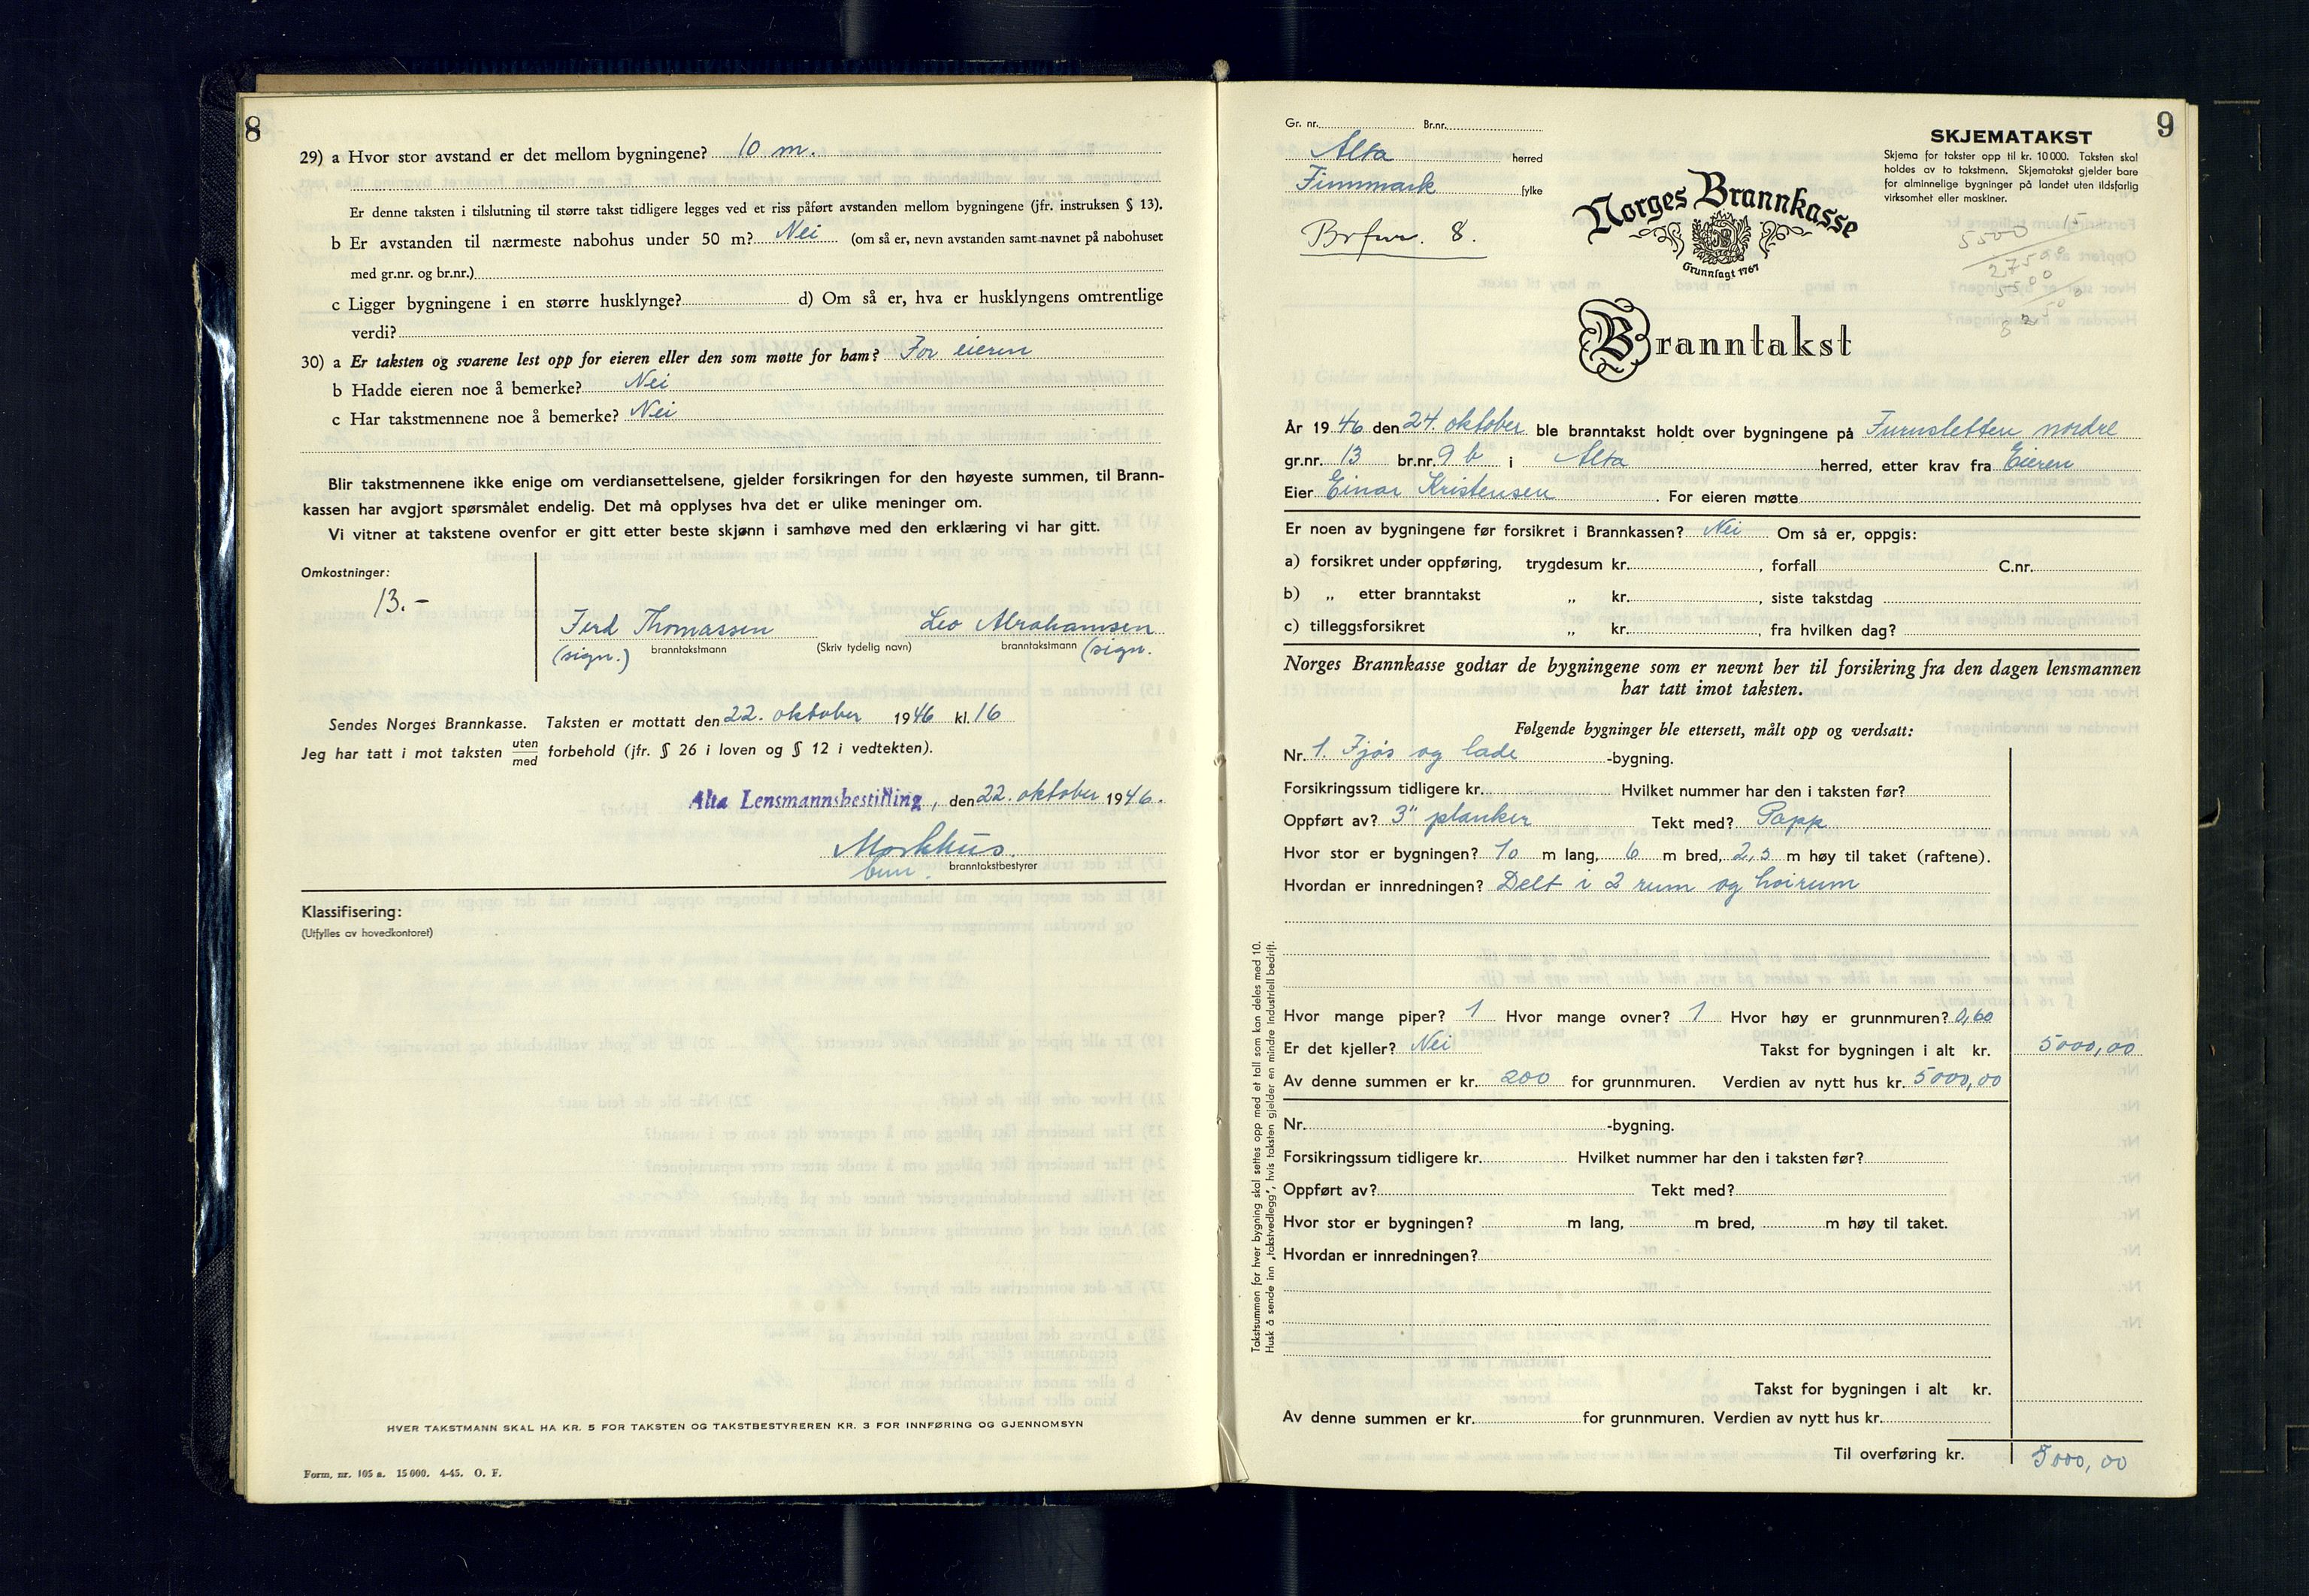 8
29) a Hvor stor avstand er det mellom bygningene? 10 m.
Er denne taksten i tilslutning til større takst tidligere legges ved et riss påført avstanden mellom bygningene (jfr. instruksen § 13).
b Er avstanden til nærmeste nabohus under 50 m? Nei (om så er, nevn avstanden samt navnet på nabohuset
med gr.nr. og br.nr.)
c Ligger bygningene i en større husklynge? d) Om så er, hva er husklyngens omtrentlige
verdi?
30) a Er taksten og svarene lest opp for eieren eller den som møtte for ham? For eieren
b Hadde eieren noe å bemerke? Nei
c Har takstmennene noe å bemerke? Nei
Blir takstmennene ikke enige om verdiansettelsene, gjelder forsikringen for den høyeste summen, til Brann-
kassen har avgjort spørsmålet endelig. Det må opplyses hva det er ulike meninger om.
Vi vitner at takstene ovenfor er gitt etter beste skjønn i samhøve med den erklæring vi har gitt.
Omkostninger:
13.-
Ferd Thomassen Leo Abrahamsen
(sign.) branntakstmann (Skriv tydelig navn) branntakstmann (sign.
Sendes Norges Brannkasse. Taksten er mottatt den 22. oktober 1946 kl. 16
Jeg har tatt i mot taksten uten/med forbehold (jfr. § 26 i loven og § 12 i vedtekten).
Alta Lensmannsbestilling, den 22. oktober 1946.
Morkhus.
branntakstbestyrer
Klassifisering:
(Utfylles av hovedkontoret)
HVER TAKSTMANN SKAL HA KR. 5 FOR TAKSTEN OG TAKSTBESTYREREN KR. 3 FOR INNFØRING OG GJENNOMSYN
Form. nr. 105 a. 15 000. 4-45. O. F.
9
Gr. nr. Br.nr.
Alta herred
Finnmark fylke
Brfur. 8.
SKJEMATAKST
Skjema for takster opp til kr. 10 000. Taksten skal
holdes av to takstmenn. Skjematakst gjelder bare
for alminnelige bygninger på landet uten ildsfarlig
virksomhet eller maskiner.
Norges Brannkasse
Grunnlagt 1767
Branntakst
År 1946 den 24. oktober ble branntakst holdt over bygningene på Furusletten nordre
gr.nr. 13 br.nr. 9 b i Alta herred, etter krav fra Eieren
Eier Einar Kristensen. For eieren møtte
Er noen av bygningene før forsikret i Brannkassen? Nei Om så er, oppgis:
a) forsikret under oppføring, trygdesum kr. , forfall C.nr.
b) „ etter branntakst „ kr. , siste takstdag
c) tilleggsforsikret „ kr. , fra hvilken dag?
Norges Brannkasse godtar de bygningene som er nevnt her til forsikring fra den dagen lensmannen
har tatt imot taksten.
Følgende bygninger ble ettersett, målt opp og verdsatt:
Nr. 1. Fjøs og lade -bygning.
Forsikringssum tidligere kr. Hvilket nummer har den i taksten før?
Oppført av? 3" planker Tekt med? Papp
Hvor stor er bygningen? 10 m lang, 6 m bred, 2,5 m høy til taket (raftene).
Hvordan er innredningen? Delt i 2 rum og hoirum
Hvor mange piper? 1 Hvor mange ovner? 1 Hvor høy er grunnmuren? 0,60
Er det kjeller? Nei Takst for bygningen i alt kr. 5000,00
Av denne summen er kr. 200 for grunnmuren. Verdien av nytt hus kr. 5000,00
Nr. -bygning.
Forsikringssum tidligere kr. Hvilket nummer har den i taksten før?
Oppført av? Tekt med?
Hvor stor er bygningen? m lang, m bred, m høy til taket.
Hvordan er innredningen?
Takst for bygningen i alt kr.
Av denne summen er kr. for grunnmuren. Verdien av nytt hus kr.
Til overføring kr. 5000,00
Takstsummen for hver bygning skal settes opp med et tall som kan deles med 10.
Husk å sende inn „takstvedlegg", hvis taksten gjelder en mindre industriell bedrift.